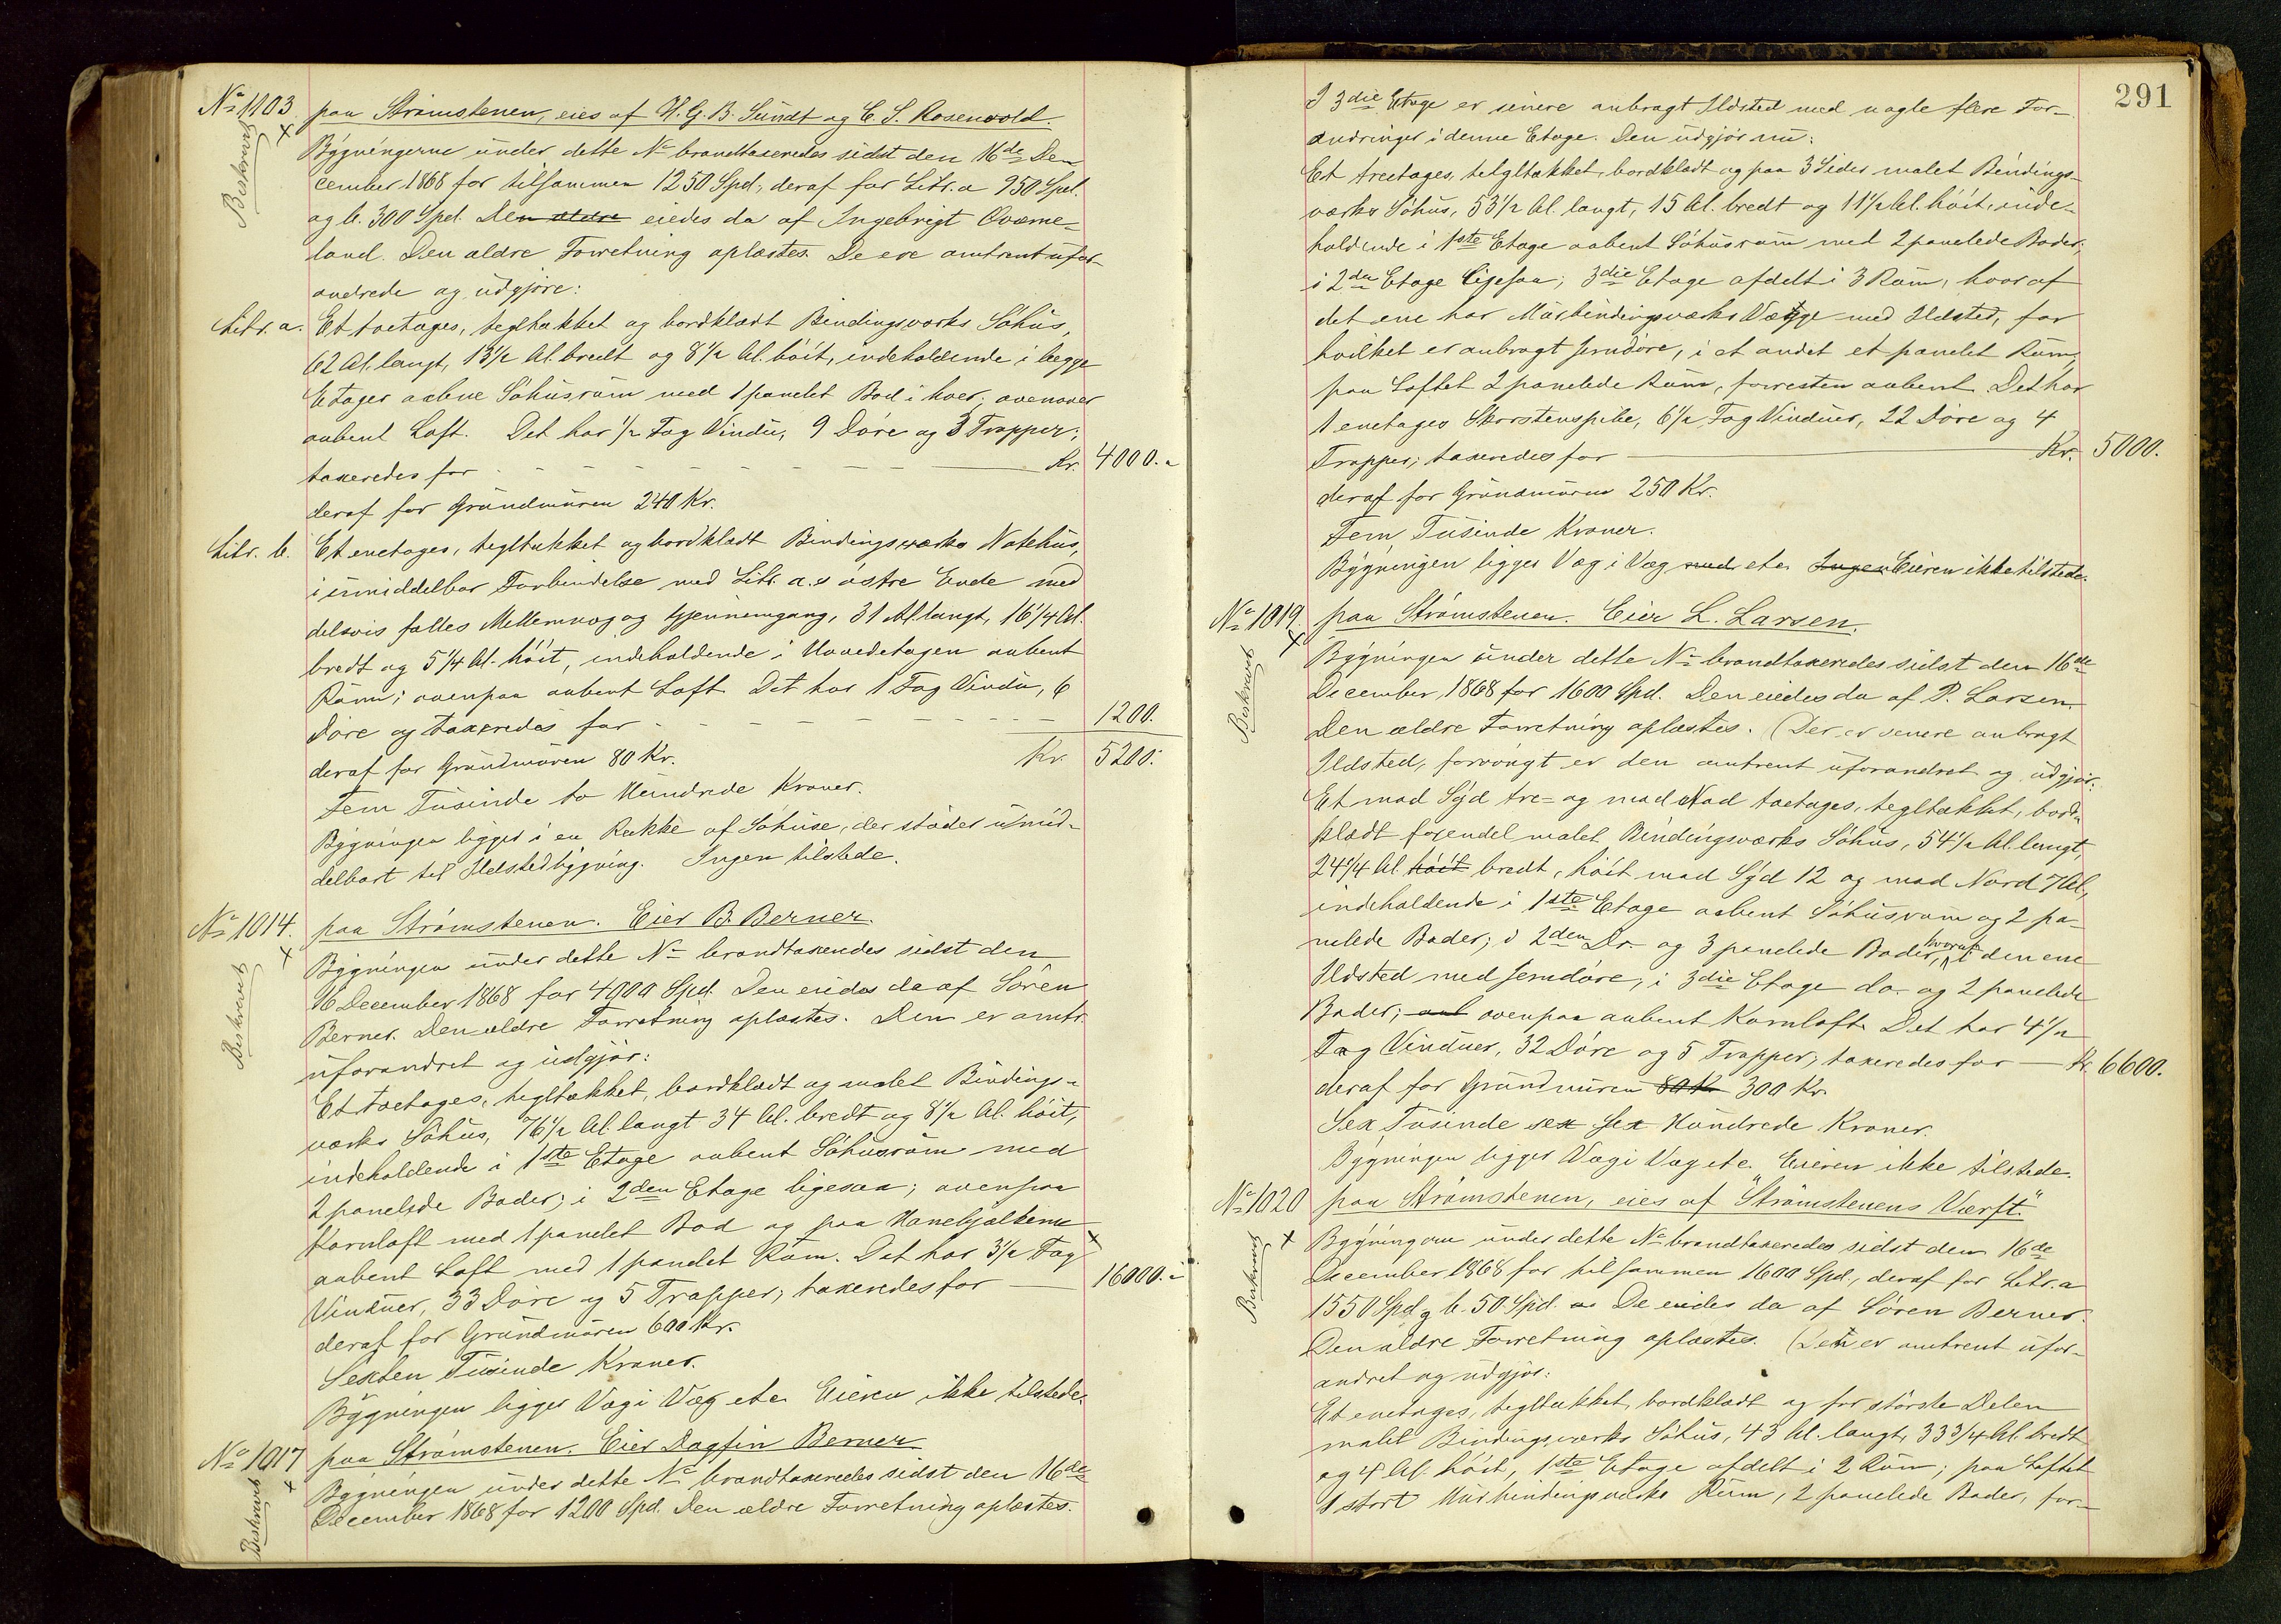 No 1103. paa Strömstenen, eies af H. G. B. Sundt og C. S. Rosenvold.
Beskrevet
Bygningerne under dette No brandtaxeredes sidst den 16de De-
cember 1868 for tilsammen 1250 Spd., deraf for Litr. a 950 Spd.
og b. 300 Spd. Den ældre eiedes da af Ingebrigt Oværne-
land. Den ældre Forretning oplæstes. De ere omtrent ufor-
andrede og udgjöre:
Litr. a. Et toetages, tegltækket og bordklædt Bindingsværks Söhus,
62 Al. langt, 13 1/2 Al. bredt og 8 1/2 Al. höit, indeholdende i begge
Etager aabne Söhusrum med 1 panelet Bod i hver; ovenover
aabent Loft. Det har 1/2 Fag Vindu, 9 Döre og 3 Trapper;
taxeredes for - - - - - - - - Kr. 4000.-
deraf for Grundmuren 240 Kr.
Litr. b. Et enetages, tegltækket og bordklædt Bindingsværks Notehus,
i umiddelbar Forbindelse med Litr. a.s östre Ende med
delsvis fælles Mellemvæg og Gjennemgang, 31 Al. langt, 16 1/4 Al.
bredt og 5 1/4 Al. höit, indeholdende i Hovedetagen aabent
Rum; ovenpaa aabent Loft. Det har 1 Fag Vindu, 6
Döre og taxeredes for - - - - - - - - 1200.
deraf for Grundmuren 80 Kr. Kr. 5200.
Fem Tusinde to Hundrede Kroner.
Bygningen ligger i en Række af Söhuse, der stöder umid-
delbart til Ildstedbygning. Ingen tilstede.
No 1014. paa Strömstenen. Eier B. Berner.
Beskrevet
Bygningen under dette No brandtaxeredes sidst den
16 December 1868 for 4000 Spd. Den eiedes da af Sören
Berner. Den ældre Forretning oplæstes. Den er omtr.
uforandret og udgjör:
Et toetages, tegltækket, bordklædt og malet Bindings-
værks Söhus, 76 1/2 Al. langt 34 Al. bredt og 8 1/2 Al. höit,
indeholdende i 1ste Etage aabent Söhusrum med
2 panelede Boder; i 2den Etage ligesaa; ovenpaa
Kornloft med 1 panelet Bod og paa Hanebjælkerne
aabent Loft med 1 panelet Rum. Det har 3 1/2 Fag
Vinduer, 33 Döre og 5 Trapper; taxeredes for 16000.-
deraf for Grundmuren 600 Kr.
Sexten Tusinde Kroner.
Bygningen ligger Væg i Væg etc. Eieren ikke tilstede.
No 1017 paa Strömstenen. Eier Dagfin Berner
Beskrevet
Bygningen under dette No brandtaxeredes sidst den 16de
December 1868 for 1200 Spd. Den ældre Forretning oplæstes.
291
I 3die Etage er senere anbragt Ildsted med nogle flere For-
andringer i denne Etage. Den udgjör nu:
Et treetages, teltgltækket, bordklædt og paa 3 Sider malet Bindings-
værks Söhus, 53 1/2 Al. langt, 15 Al. bredt og 11 1/2 Al. höit, inde-
holdende i 1ste Etage aabent Söhusrum med 2 panelede Boder;
i 2den Etage ligesaa; 3die Etage afdelt i 3 Rum, hvoraf
det ene har Murbindingsværks Vægge med Ildsted, for
hvilket er anbragt Jerndöre, i et andet et panelet Rum,
paa Loftet 2 panelede Rum, forresten aabent. Det har
1 enetages Skorstenspibe, 6 1/2 Fag Vinduer, 22 Döre og 4
Trapper; taxeredes for Kr. 5000.
deraf for Grundmuren 250 Kr.
Fem Tusinde Kroner.
Bygningen ligger Væg i Væg med etc. Ingen Eieren ikke tilstede.
No 1019. paa Strömstenen. Eier L. Larsen.
Beskrevet
Bygningen under dette No brandtaxeredes sidst den 16de
December 1868 for 1600 Spd. Den eiedes da af P. Larsen.
Den ældre Forretning oplæstes. (Der er senere anbragt
Ildsted, forövrigt er den omtrent uforandret og udgjör:
Et mod Syd tre- og mod Nord toetages, tegltækket, bord-
klædt forendel malet Bindingsværks Söhus, 54 1/2 Al. langt,
24 1/4 Al höit bredt, höit mod Syd 12 og mod Nord 7 Al,
indeholdende i 1ste Etage aabent Söhusrum og 2 pa-
nelede Boder; i 2den Do. og 3 panelede Boder, hvoraf i den ene
Ildsted med Jerndöre; i 3die Etage do. og 2 panelede
Boder; ovenpaa aabent Kornloft. Det har 4 1/2
Fag Vinduer, 32 Döre og 5 Trapper; taxeredes for Kr. 6600.
deraf for Grundmuren 80 Kr 300 Kr.
Sex Tusinde sex Sex Hundrede Kroner.
Bygningen ligger Væg i Væg etc. Eieren ikke tilstede.
No 1020 paa Strömstenen, eies af "Strömstenens Værft."
Beskrevet
Bygningerne under dette No brandtaxeredes sidst den 16de
December 1868 for tilsammen 1600 Spd., deraf for Litr. a
1550 Spd. og b. 50 Spd. De eiedes da af Sören Berner.
Den ældre Forretning oplæstes. (Den er omtrent ufor-
andret og udgjör:
Et enetages, tegltækket, bordklædt og for störste Delen
malet Bindingsværks Söhus, 43 Al. langt, 33 3/4 Al. bredt
og 4 Al. höit, 1ste Etage afdelt i 2 Rum; paa Loftet
1 stort Murbindingsværks Rum, 2 panelede Boder, for-